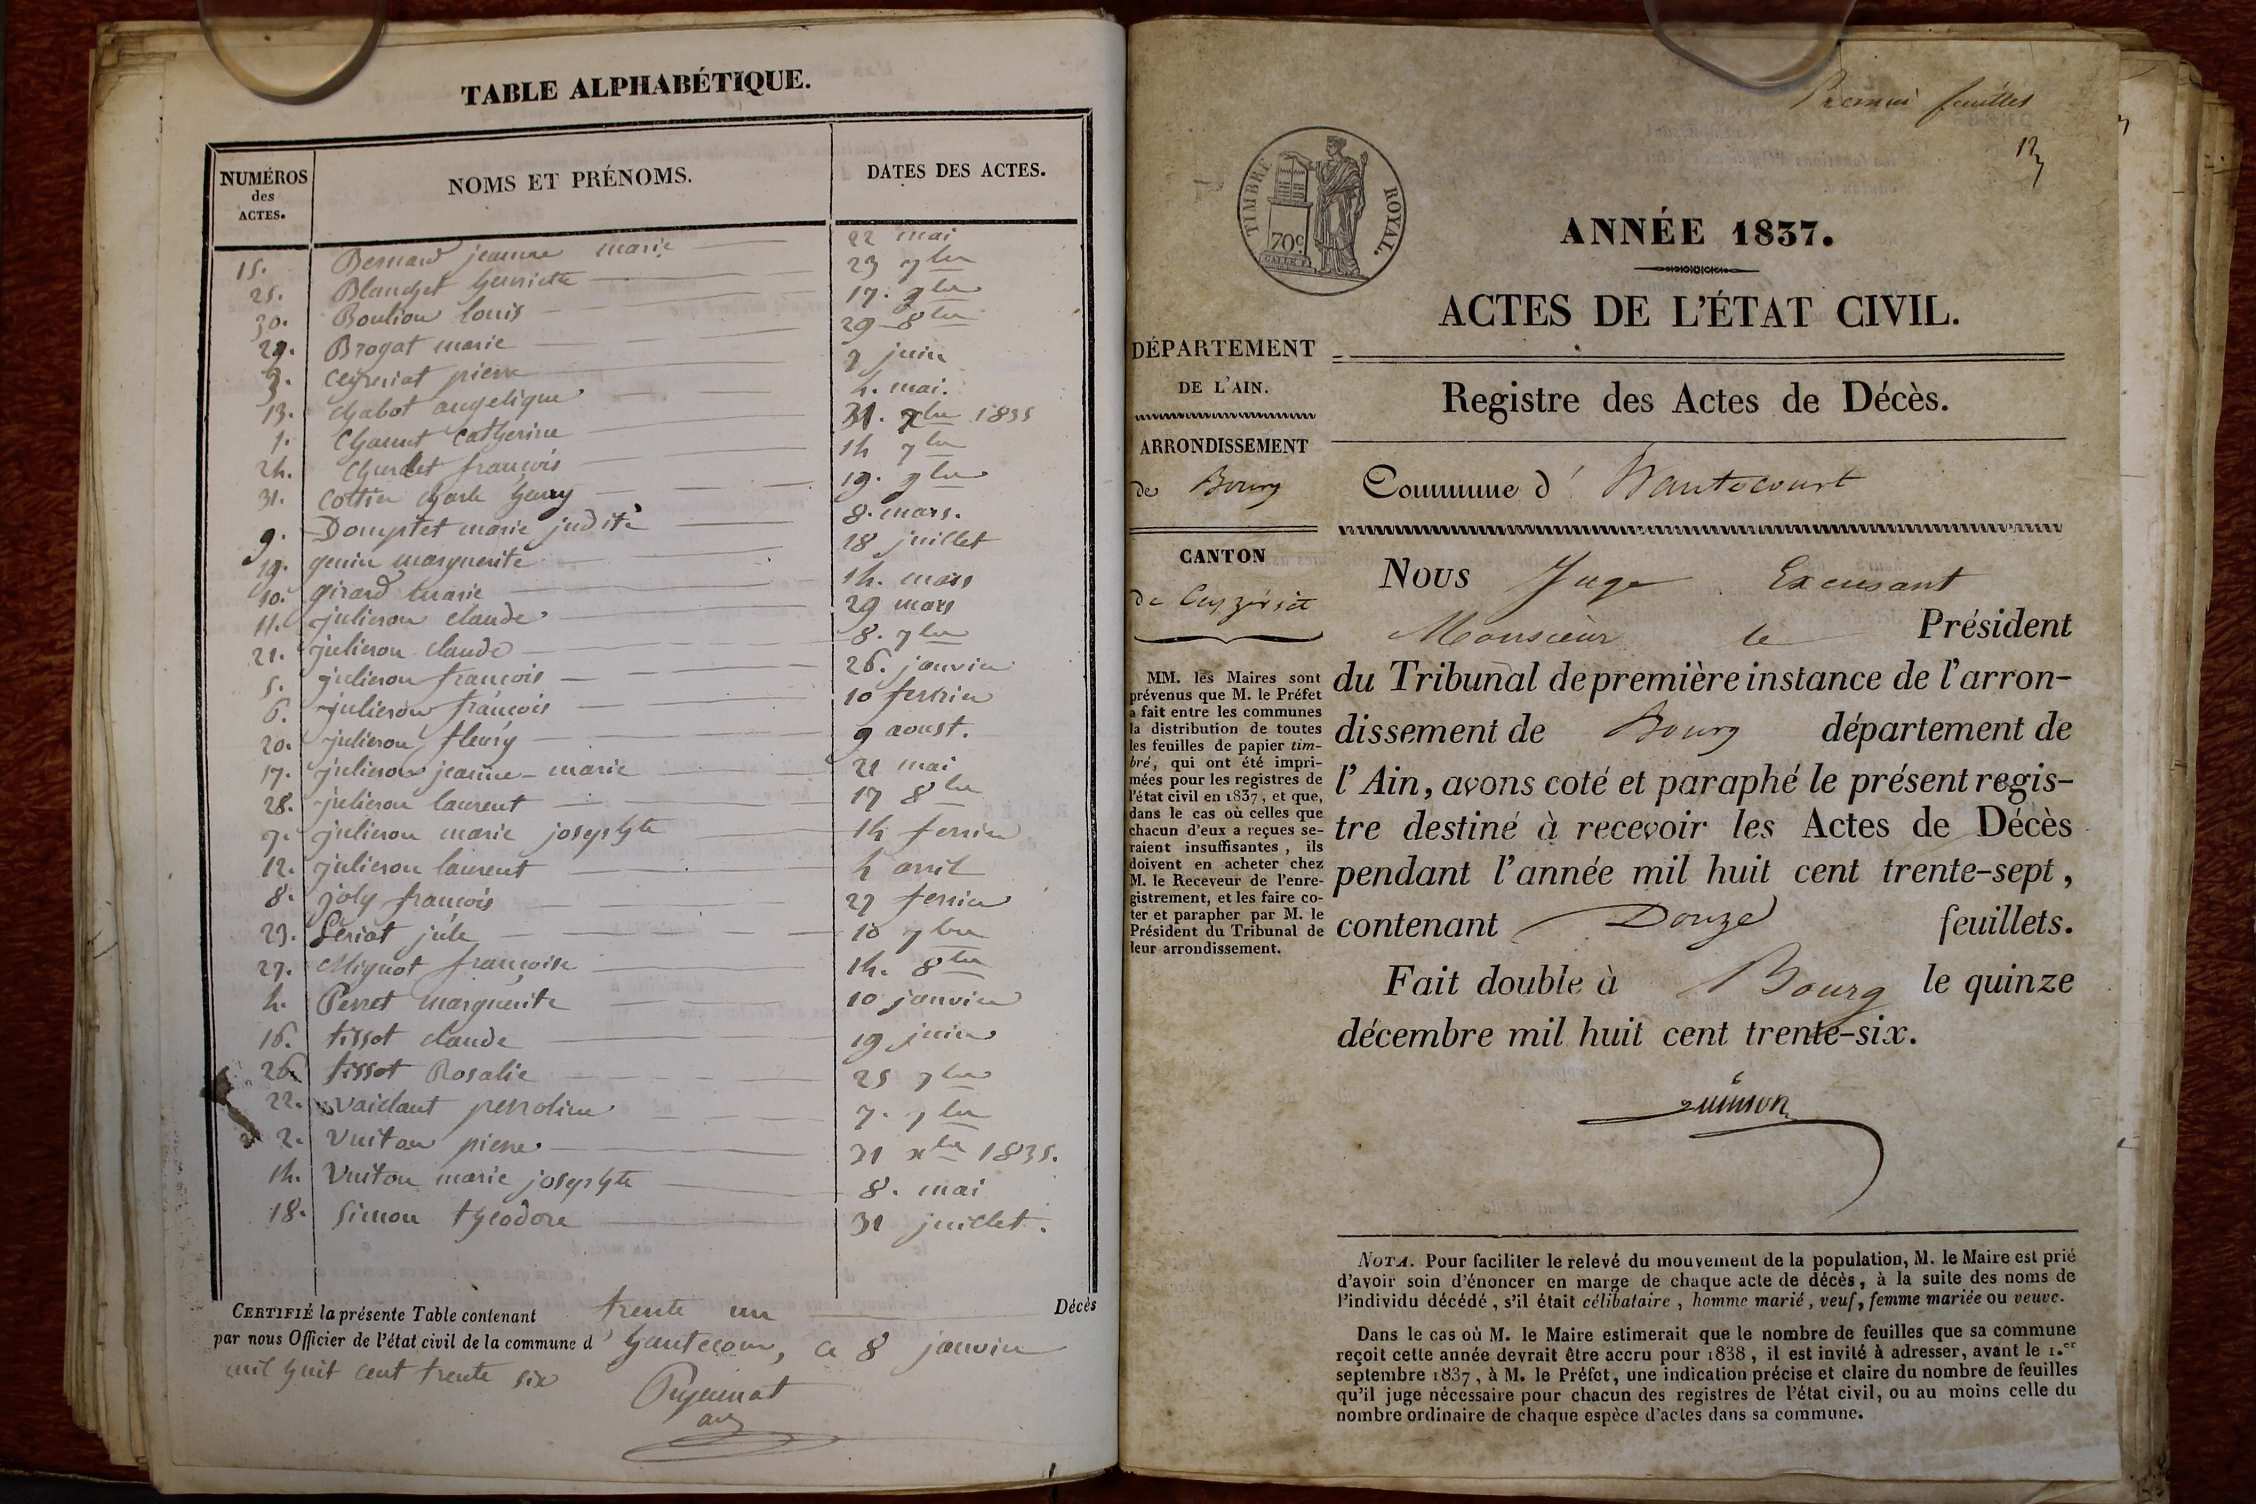 TABLE ALPHABÉTIQUE.
NUMÉROS
des
ACTES.
NOMS ET PRÉNOMS.
DATES DES ACTES.
15. Bernard jeanne marie 22 mai
25. Blanchet henriette 23 7bre
30. Boulion louis 17. 9bre
29. Brogat marie 29 8bre
3. Ceyzeriat pierre juin
13. Chabot angelique 4. mai.
1. Catherine 31. xbre 1835
24. françois 14 7bre
31. Cottier charle henry 19. 9bre
9. Domptet marie judite 8. mars.
19. genin marguerite 28 juillet
10. girard marie 14. mars
11. julieron claude 29 mars
21. julieron claude 8. 7bre
5. julieron francois 26. janvier
6. julieron francois 10 fevrier
20. julieron fleury 9 aoust.
17. julieron jeanne-marie 21 mai
28. julieron laurent 17 8bre
7. julieron marie josephte 14 fevrier
12. julieron laurent 4 avril
8. joly francois 27 fevrier
23. Leriat jule 10 7bre
27. Mignot françoise 14. 8bre
4. Perret marguerite 10 janvier
16. tissot claude 19 juin
26 tissot Rosalie 25 7bre
22. vaillant perroline 7. 7bre
2. Vuiton pierre 31 xbre 1835.
14. Vuiton marie josephte 8. mai
18. Simon théodore 31 juillet.
CERTIFIÉ la présente Table contenant trente un Décès
par nous Officier de l'état civil de la commune d' hautecour, ce 8 janvier
mil huit cent trente six
Premier feuillet
12
TIMBRE ROYAL.
70c.
ANNÉE 1837.
ACTES DE L'ÉTAT CIVIL.
DÉPARTEMENT
DE L'AIN.
ARRONDISSEMENT
de Bourg
CANTON
de Ceyzériat
MM. les Maires sont
prévenus que M. le Préfet
a fait entre les communes
la distribution de toutes
les feuilles de papier tim-
bré, qui ont été impri-
mées pour les registres de
l'état civil en 1837, et que,
dans le cas où celles que
chacun d'eux a reçues se-
raient insuffisantes, ils
doivent en acheter chez
M. le Receveur de l'enre-
gistrement, et les faire co-
ter et parapher par M. le
Président du Tribunal de
leur arrondissement.
Registre des Actes de Décès.
Commune d' Hautecourt
Nous Juge Excusant
Monsieur le Président
du Tribunal de première instance de l'arron-
dissement de Bourg département de
l'Ain, avons coté et paraphé le présent regis-
tre destiné à recevoir les Actes de Décès
pendant l'année mil huit cent trente-sept,
contenant Douze feuillets.
Fait double à Bourg le quinze
décembre mil huit cent trente-six.
NOTA. Pour faciliter le relevé du mouvement de la population, M. le Maire est prié
d'avoir soin d'énoncer en marge de chaque acte de décès, à la suite des noms de
l'individu décédé, s'il était célibataire, homme marié, veuf, femme mariée ou veuve.
Dans le cas où M. le Maire estimerait que le nombre de feuilles que sa commune
reçoit cette année devrait être accru pour 1838, il est invité à adresser, avant le 1.er
septembre 1837, à M. le Préfet, une indication précise et claire du nombre de feuilles
qu'il juge nécessaire pour chacun des registres de l'état civil, ou au moins celle du
nombre ordinaire de chaque espèce d'actes dans sa commune.